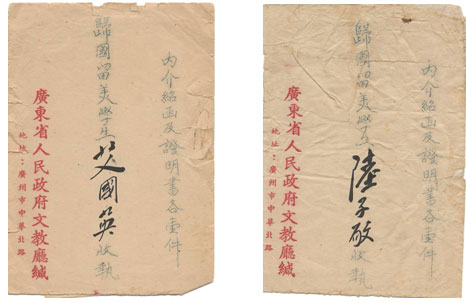 内介紹函及證明書各壹件
歸國留美學生國英收執
廣東省人民政府文教廳緘
地址：廣州市中華北路
内介紹函及證明書各壹件
歸國留美學生陸子敬收執
廣東省人民政府文教廳緘
地址：廣州市中華北路